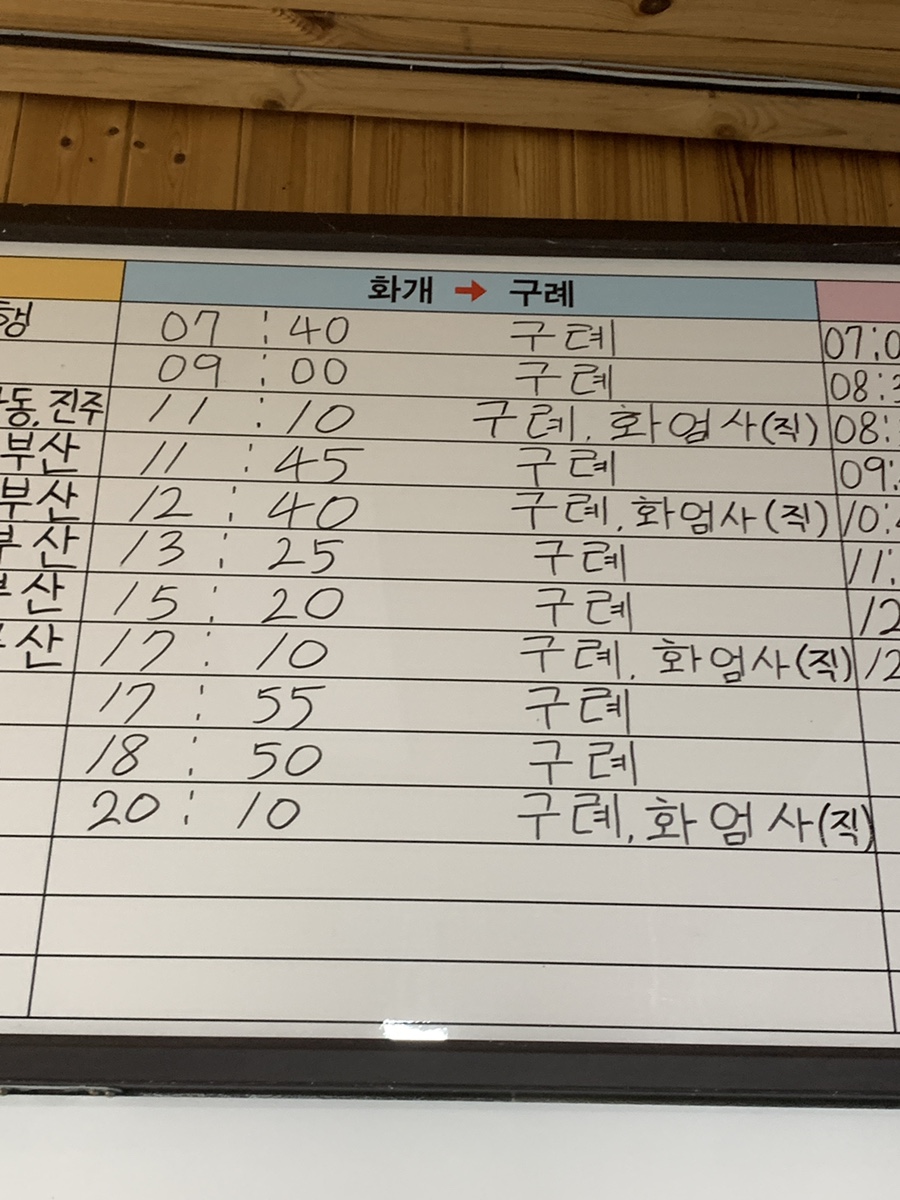 화개 → 구례
행 07:40 구례 07:0
09:00 구례 08:3
동, 진주 11:10 구례, 화엄사(직) 08:
부산 11:45 구례 09:
부산 12:40 구례, 화엄사(직) 10:4
부산 13:25 구례 11:
부산 15:20 구례 12
산 17:10 구례, 화엄사(직) 12
17:55 구례
18:50 구례
20:10 구례, 화엄사(직)